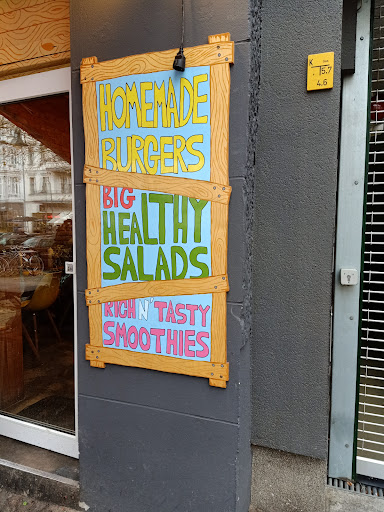 HOMEMADE
BURGERS
BIG
HEALTHY
SALADS
RICH N' TASTY
SMOOTHIES
K
15,7
4,6